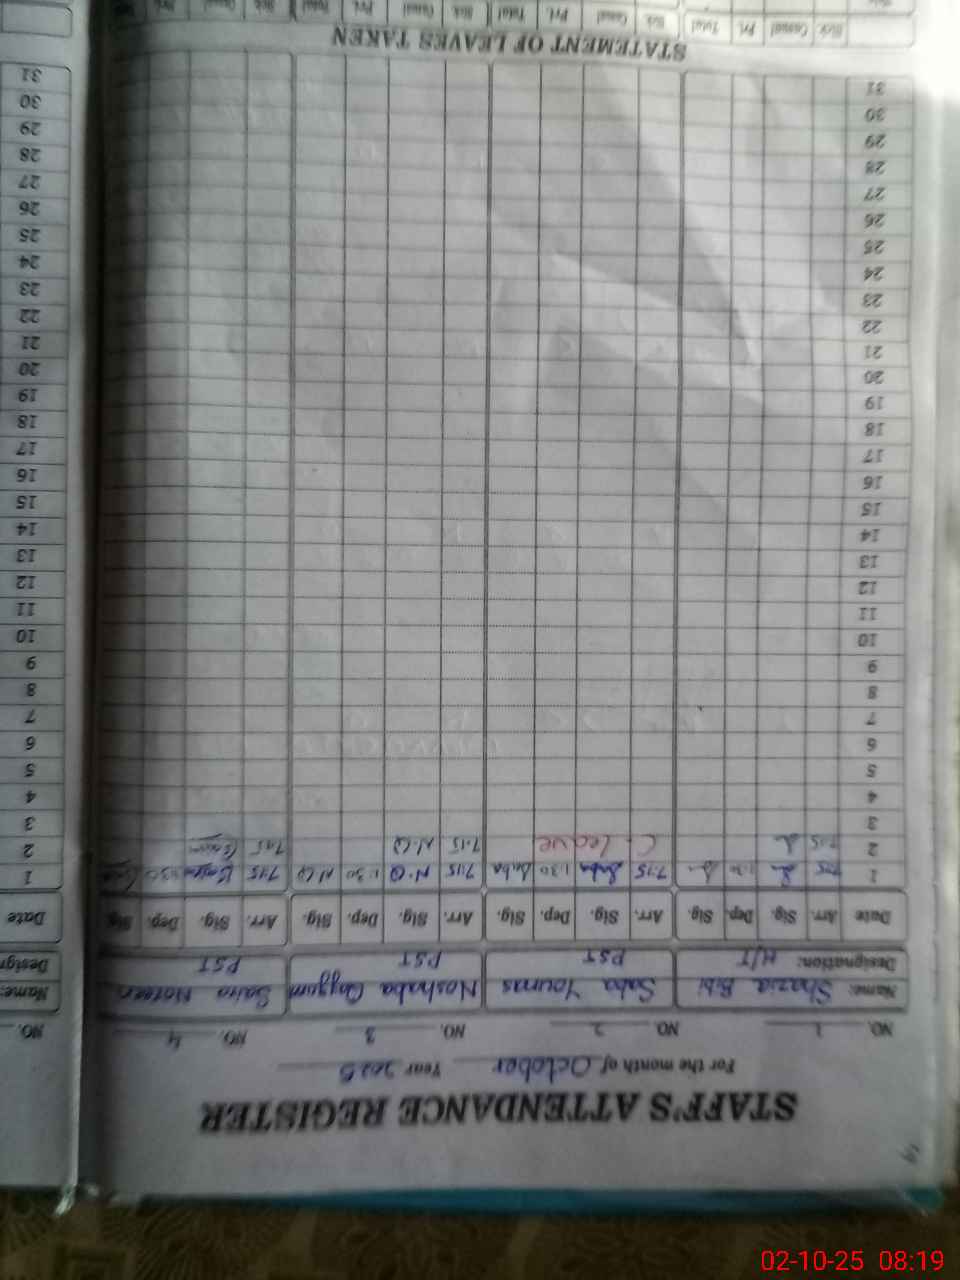 STAFF'S ATTENDANCE REGISTER
For the month of October Year 2025
NO. 1 NO. 2 NO. 3 NO. 4 NO.
Name: Shazia Bibi Saba Younas Noshaba Qayyum Saira Noreen Name:
Designation: H/T PST PST PST Design
Date Arr. Sig. Dep. Sig. Arr. Sig. Dep. Sig. Arr. Sig. Dep. Sig. Arr. Sig. Dep. Sig. Date
1 7:15 1:30 7:15 Saba 1:30 Saba 7:15 N.Q 1:30 N.Q 7:15 1:30 1
2 7:15 C. leave 7:15 N.Q 7:15 2
3 3
4 4
5 5
6 6
7 7
8 8
9 9
10 10
11 11
12 12
13 13
14 14
15 15
16 16
17 17
18 18
19 19
20 20
21 21
22 22
23 23
24 24
25 25
26 26
27 27
28 28
29 29
30 30
31 31
STATEMENT OF LEAVES TAKEN
Sick Casual Prl. Total Sick Casual Prl. Total Sick Casual Prl. Total Sick Casual Prl.
02-10-25 08:19